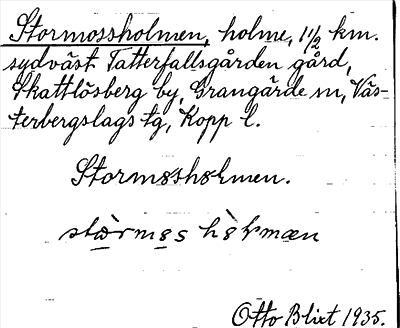 Stormossholmen, holme, 1 1/2 km.
sydväst Tatterfallsgården gård,
Skattlösberg by, Grangärde sn, Väs-
terbergslags tg, Kopp l.
Stormossholmen.
Otto Blixt 1935.